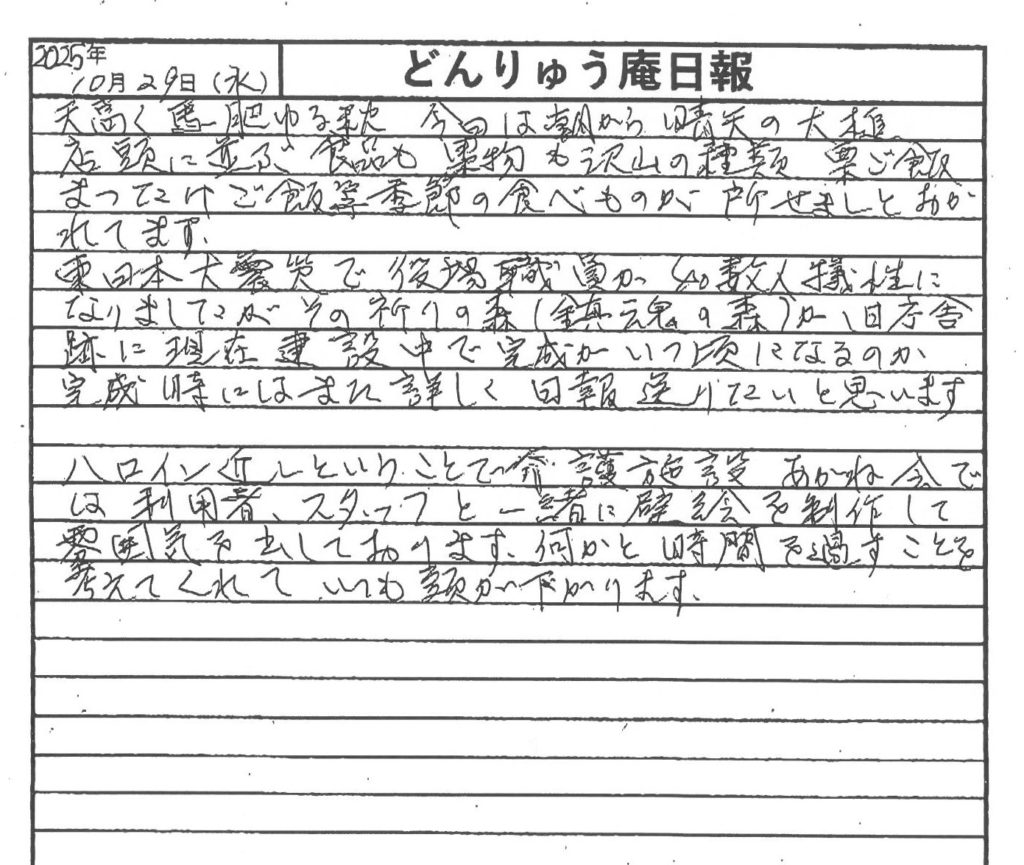 2025年
10月29日(水)
どんりゅう庵日報
天高く馬肥ゆる秋 今日は朝から晴天の大槌
店頭に並ぶ食品も果物も沢山の種類 栗ご飯
まつたけご飯等季節の食べものが所せましとおか
れてます、
東日本大震災で役場職員が40数人犠牲に
なりましたがその祈りの森(鎮魂の森)が旧庁舎
跡に現在建設中で完成がいつ頃になるのか
完成時にはまた詳しく日報送りたいと思います
ハロイン近しということで介護施設あかね会で
は利用者、スタッフと一緒に壁絵を制作して
雰囲気を出しております、何かと時間を過すことを
考えてくれていつも頭が下がります、